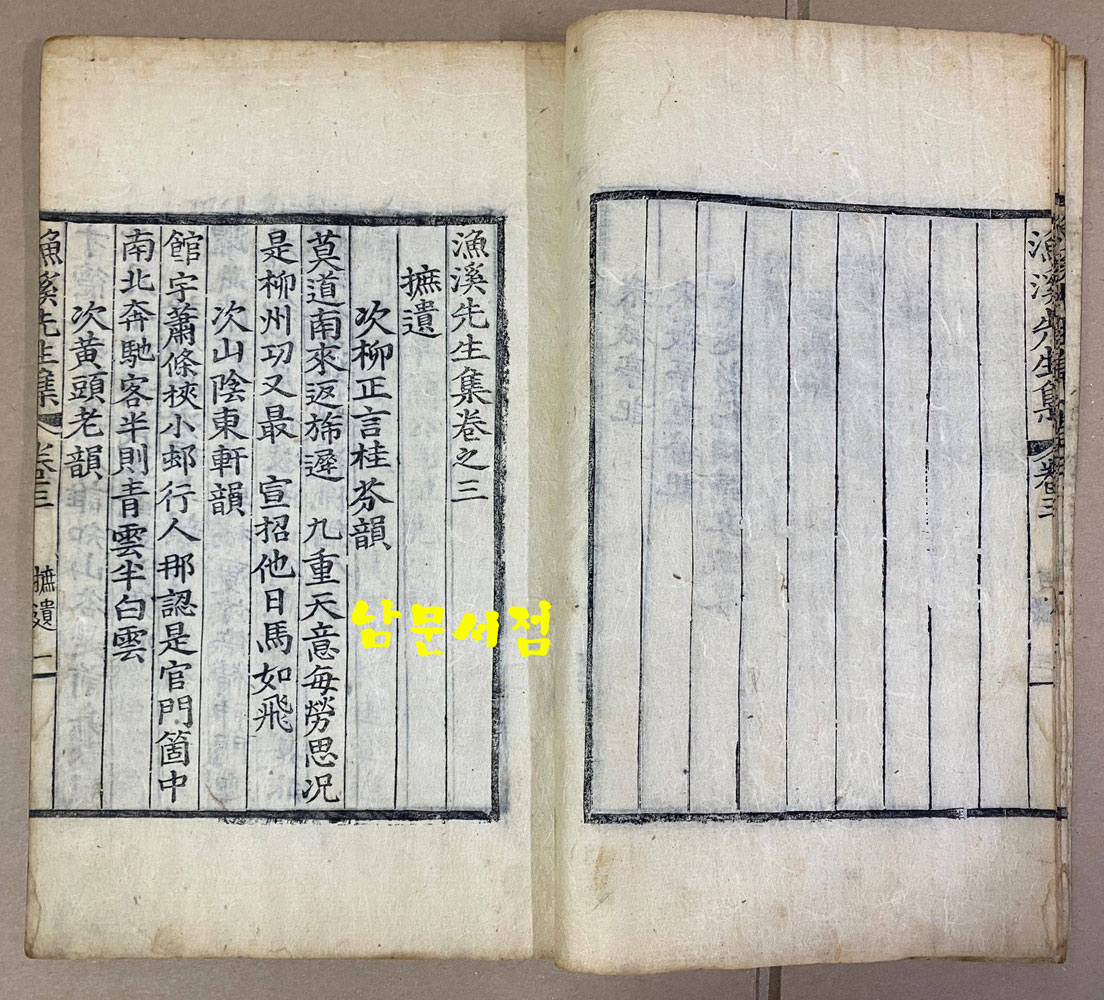 漁溪先生集
卷三
漁溪先生集卷之三
摭遺
次柳正言桂芬韻
莫道南來返旆遲 九重天意每勞思况
是柳州功又最 宣招他日馬如飛
次山陰東軒韻
館宇蕭條挾小邨行人那認是官門箇中
南北奔馳客半則青雲半白雲
次黃頭老韻
漁溪先生集 卷三 摭遺 一
남문서점